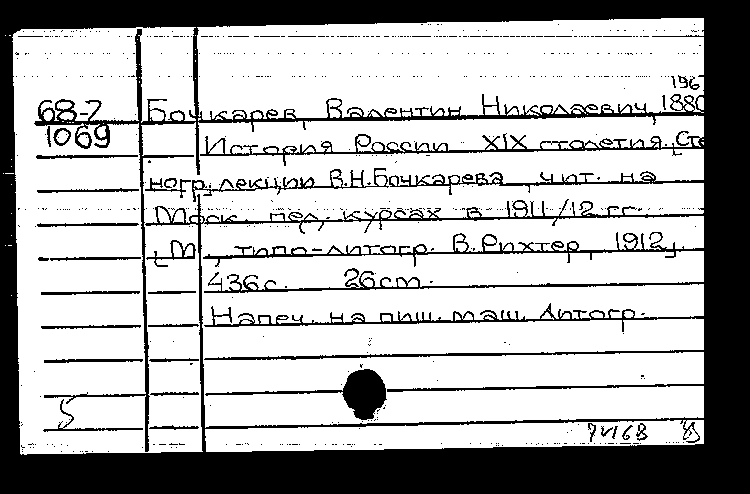 196
68-7 Бочкарев, Валентин Николаевич, 1880
1069 История России XIX столетия. [Сте
ногр. лекции В.Н.Бочкарева, чит. на
Моск. пед. курсах в 1911/12 гг.
[М., типо-литогр. В.Рихтер, 1912].
436с. 26см.
Напеч. на пиш. маш. Литогр.
5